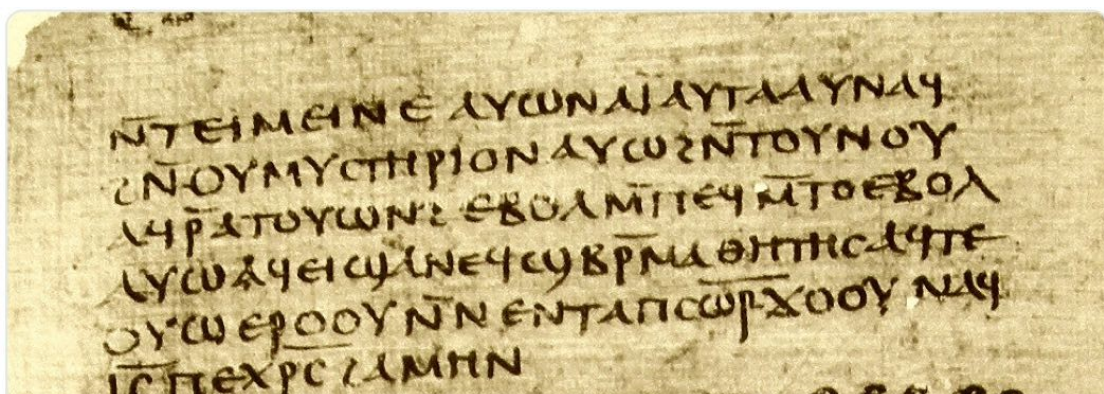 ⲛ̄ⲧⲉⲓⲙⲉⲓⲛⲉ ⲁⲩⲱ ⲛⲁⲓ̈ ⲁⲩⲧⲁⲁⲩ ⲛⲁϥ
ϩⲛ̄ⲟⲩⲙⲩⲥⲧⲏⲣⲓⲟⲛ ⲁⲩⲱ ϩⲛ̄ⲧⲟⲩⲛⲟⲩ
ⲁϥⲣ̄ⲁⲧⲟⲩⲱⲛϩ ⲉⲃⲟⲗ ⲙ̄ⲡⲉϥⲙ̄ⲧⲟ ⲉⲃⲟⲗ
ⲁⲩⲱ ⲁϥⲉⲓ ϣⲁ ⲛⲉϥϣⲃⲣ̄ⲙⲁⲑⲏⲧⲏⲥ ⲁϥⲧⲉ
ⲟⲩⲱ ⲉⲣⲟⲟⲩ ⲛ̄ⲛⲉⲛⲧⲁⲡⲥⲱ̅ⲣ̅ ϫⲟⲟⲩ ⲛⲁϥ
ⲓ̅ⲥ̅ ⲡⲉⲭⲣ̅ⲥ̅ ϩⲁⲙⲏⲛ